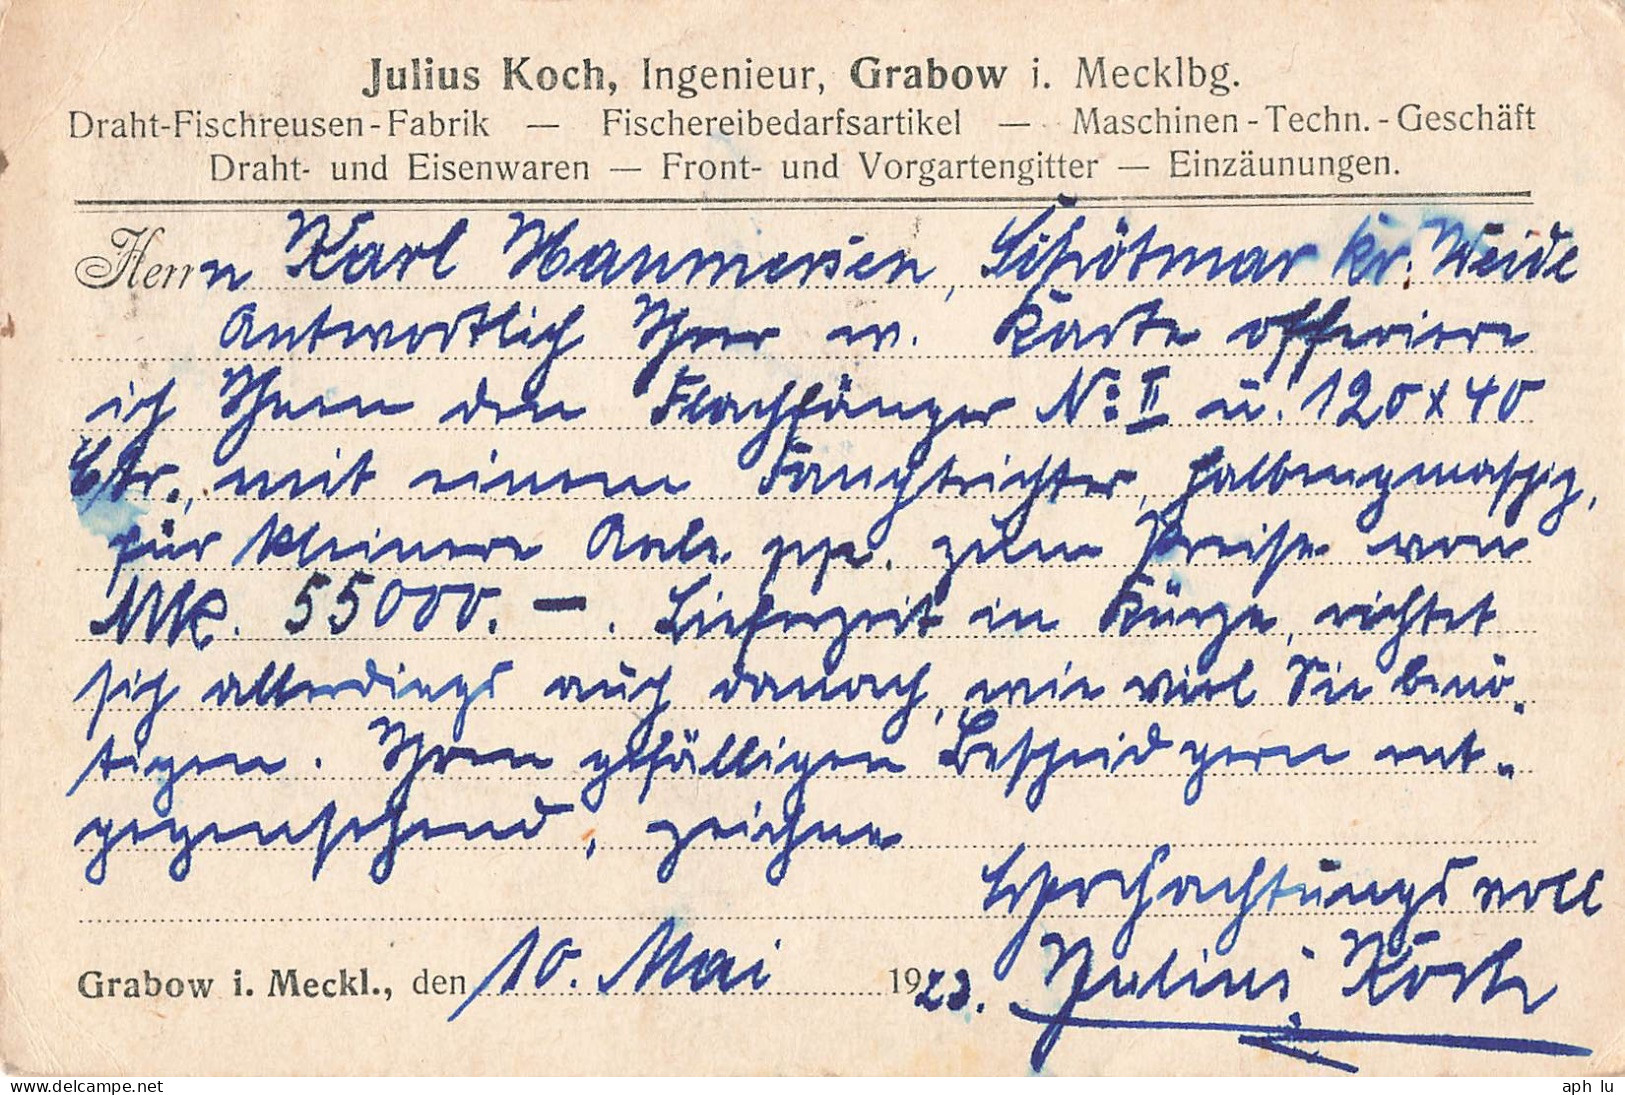 Julius Koch, Ingenieur, Grabow i. Mecklbg.
Draht-Fischreusen-Fabrik — Fischereibedarfsartikel — Maschinen-Techn.-Geschäft
Draht- und Eisenwaren — Front- und Vorgartengitter — Einzäunungen.
Herrn Karl Schötmar Kr.
Antwortlich Ihrer w. Karte offeriere
ich Ihnen den Flachfänger No II ü. 120 x 40
Ctr., mit einem Fangtrichter,
für kleinere Aale pp. zum Preise von
Mk. 55000.—. Lieferzeit in Kürze, richtet
sich allerdings auch danach, wie viel Sie benö-
tigen. Ihren gefälligen Bescheid gern ent-
gegensehend, zeichne
Hochachtungsvoll
Grabow i. Meckl., den 10. Mai 1923. Julius Koch
delcampe.net
aph lu